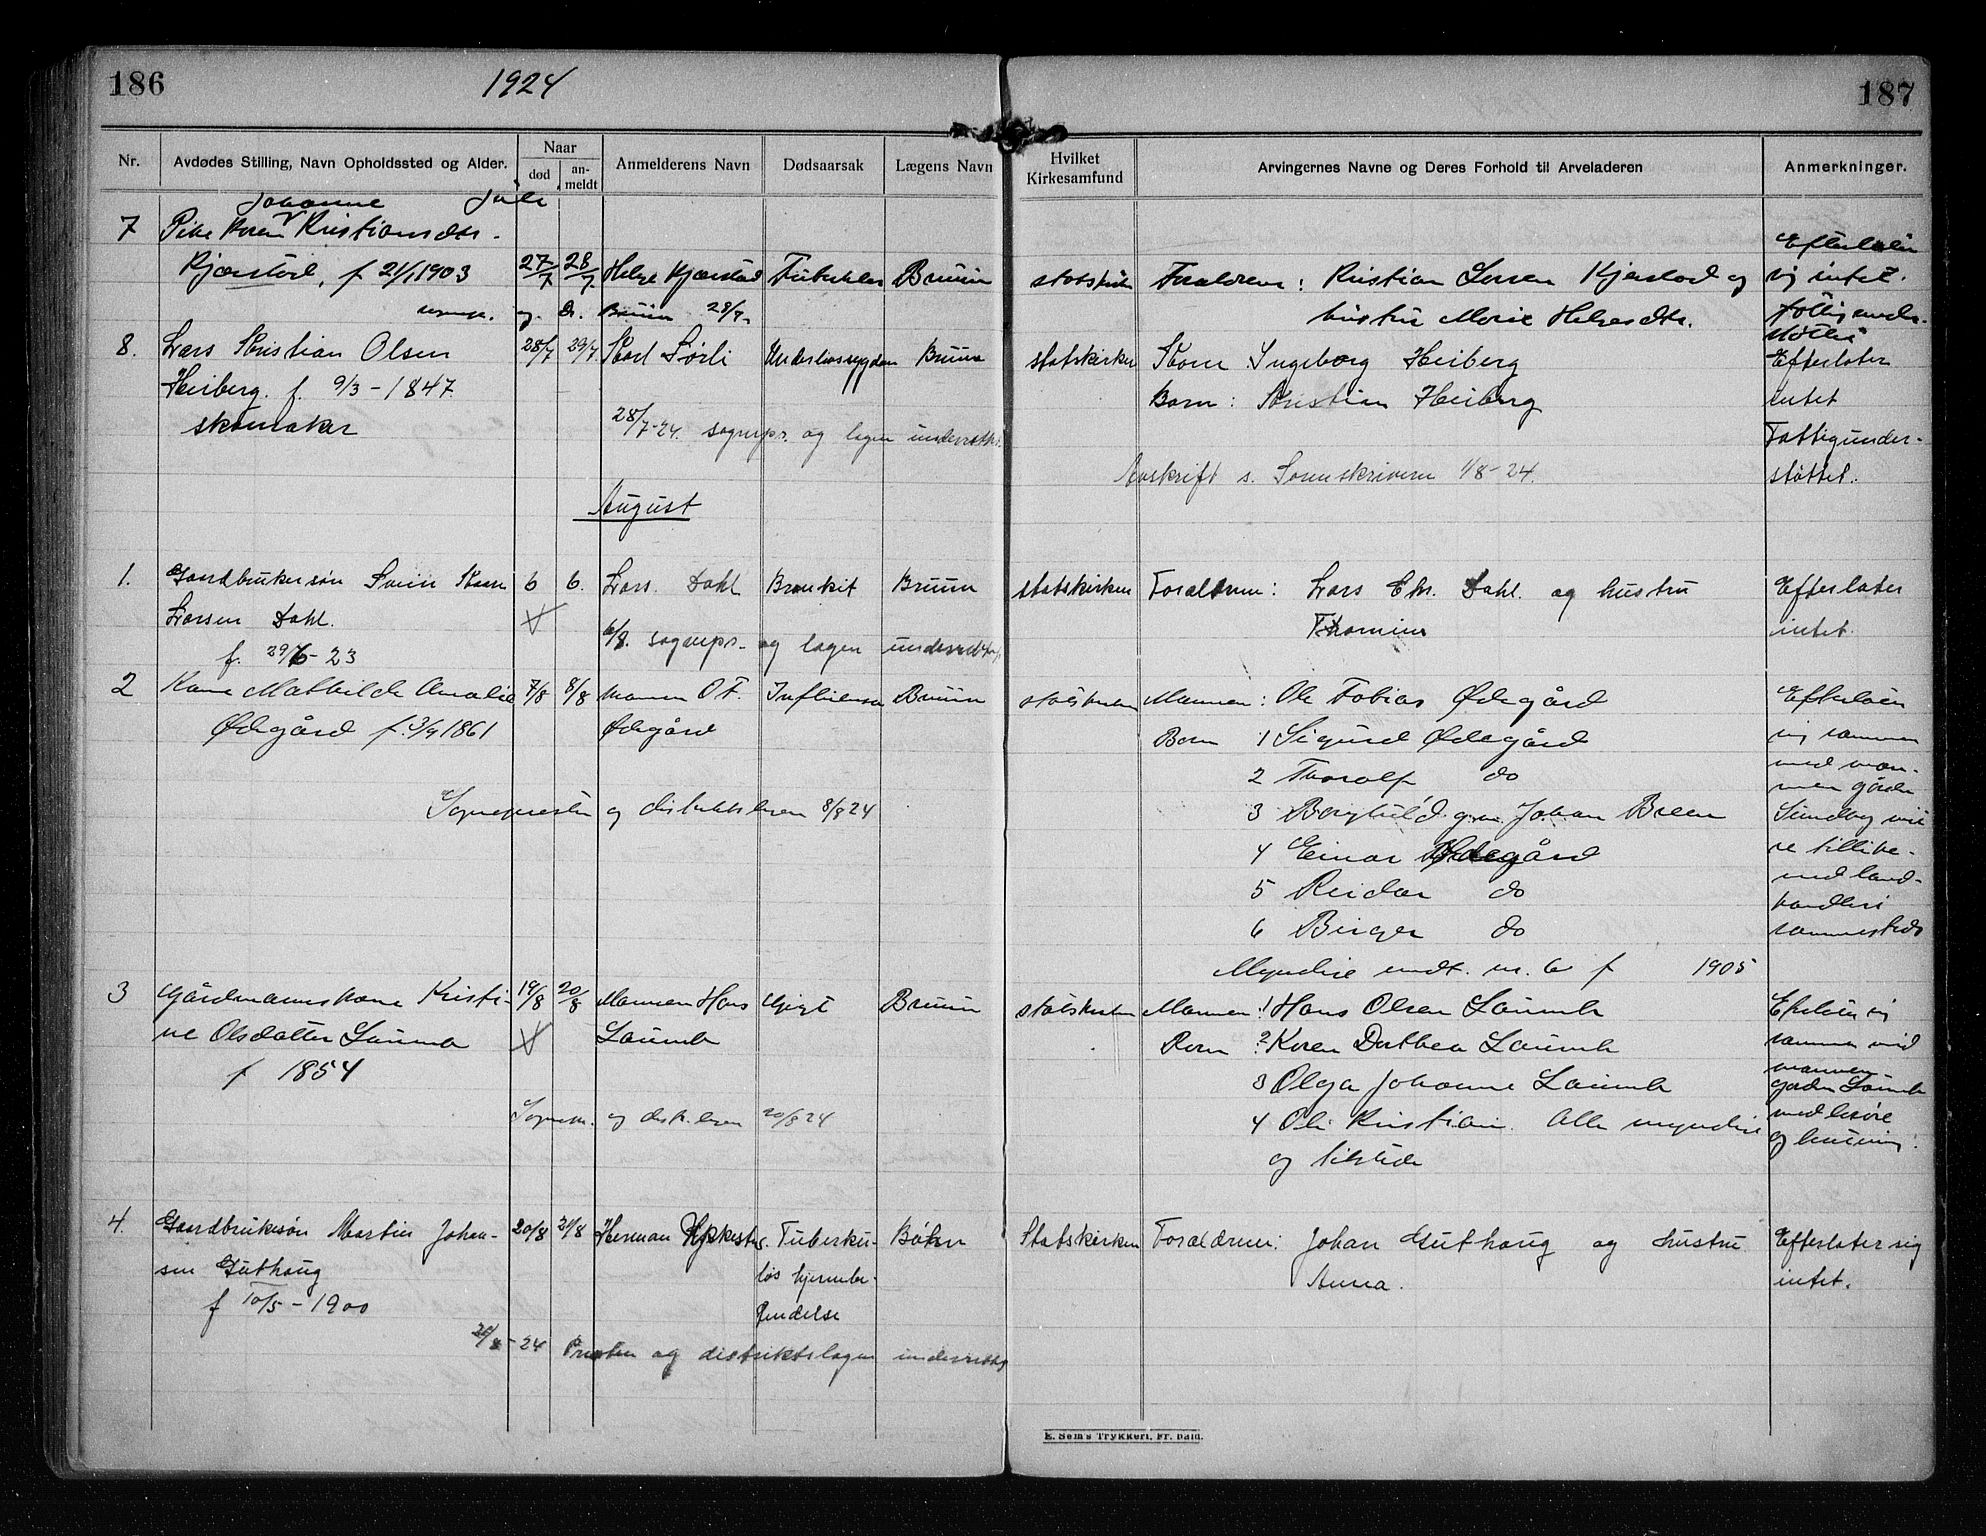 186
1924
187
Nr.
Avdødes Stilling, Navn Opholdssted og Alder.
Naar
død
an-
meldt
Anmelderens Navn
Dødsaarsak
Lægens Navn
Hvilket
Kirkesamfund
Arvingernes Navne og Deres Forhold til Arveladeren
Anmerkninger.
Johanne Juli
7 Pike Karen Kristiansdtr.
Kjærstad, f 21/1 1903 27/7 28/7 Helge Kjærstad Tuberkulos Bruun statskirken Foraldrene: Kristian Larsen Kjærstad og
hustru Marie Helgesdtr.
Efterlater
sig intet.
fattigunder-
støttet
sognepr. og Dr. Bruun 28/7
8. Lars Kristian Olsen 28/7 29/7 Karl Sørli Underlivssygdom Bruun statskirken Kone Ingeborg Heiberg
Efterlater
Heiberg. f. 9/3-1847. Barn: Kristian Heiberg intet
skomaker 28/7-24. sognepr. og lægen underrettes. Fattigunder-
støttet.
Avskrift s. Sorenskriveren 1/8-24.
August
1. Gaardbrukersøn Svein Kaare 6 6. Lars Dahl Bronkit Bruun statskirken Foraldrene: Lars Chr. Dahl og hustru Efterlater
Larsen Dahl. Thomine intet.
f. 29/6-23 6/8. sognepr. og lægen underrettes
2 Kone Mathilde Amalie 7/8 8/8 Mannen O T. Influensa Bruun statskirken Mannen: Ole Tobias Ødegård
Ødegård f. 3/9 1861 Ødegård
Barn 1 Sigurd Ødegård
2 Thoralf do
3 Borghild g.m. Johan Breen
4 Einar Ødegård
5 Reidar do
6 Birger do
Myndige undt. nr. 6 f 1905
Efterlater
sig sammen
med man-
nen gården
Sundby
med land-
handleri
sammesteds
Sognepresten og distriktslægen 8/8 24
3 Gårdmannskone Kristi- 19/8 20/8 Mannen Hans Gigt Bruun statskirken Mannen 1 Hans Olsen Laumb
ne Olsdatter Laumb Laumb Barn 2 Karen Dorthea Laumb
f 1854 3 Olga Johanne Laumb
4 Ole Kristian. Alle myndige
og tilstede
Efterlater sig
sammen med
mannen
gården Laumb
med løsøre
og buskap.
Sognepr. og distr.lægen 20/8 24
4. Gaardbrukersøn Martin Johan- 20/8 21/8 Herman Tuberku- Bøhn Statskirken Foraldrene: Johan Guthaug og hustru Efterlater sig
sen Guthaug løs hjernebe- Anna. intet.
f 10/5-1900 tendelse
21/8-24 Presten og distriktslægen underrettes
E. Sem's Trykkeri, Fr.hald.